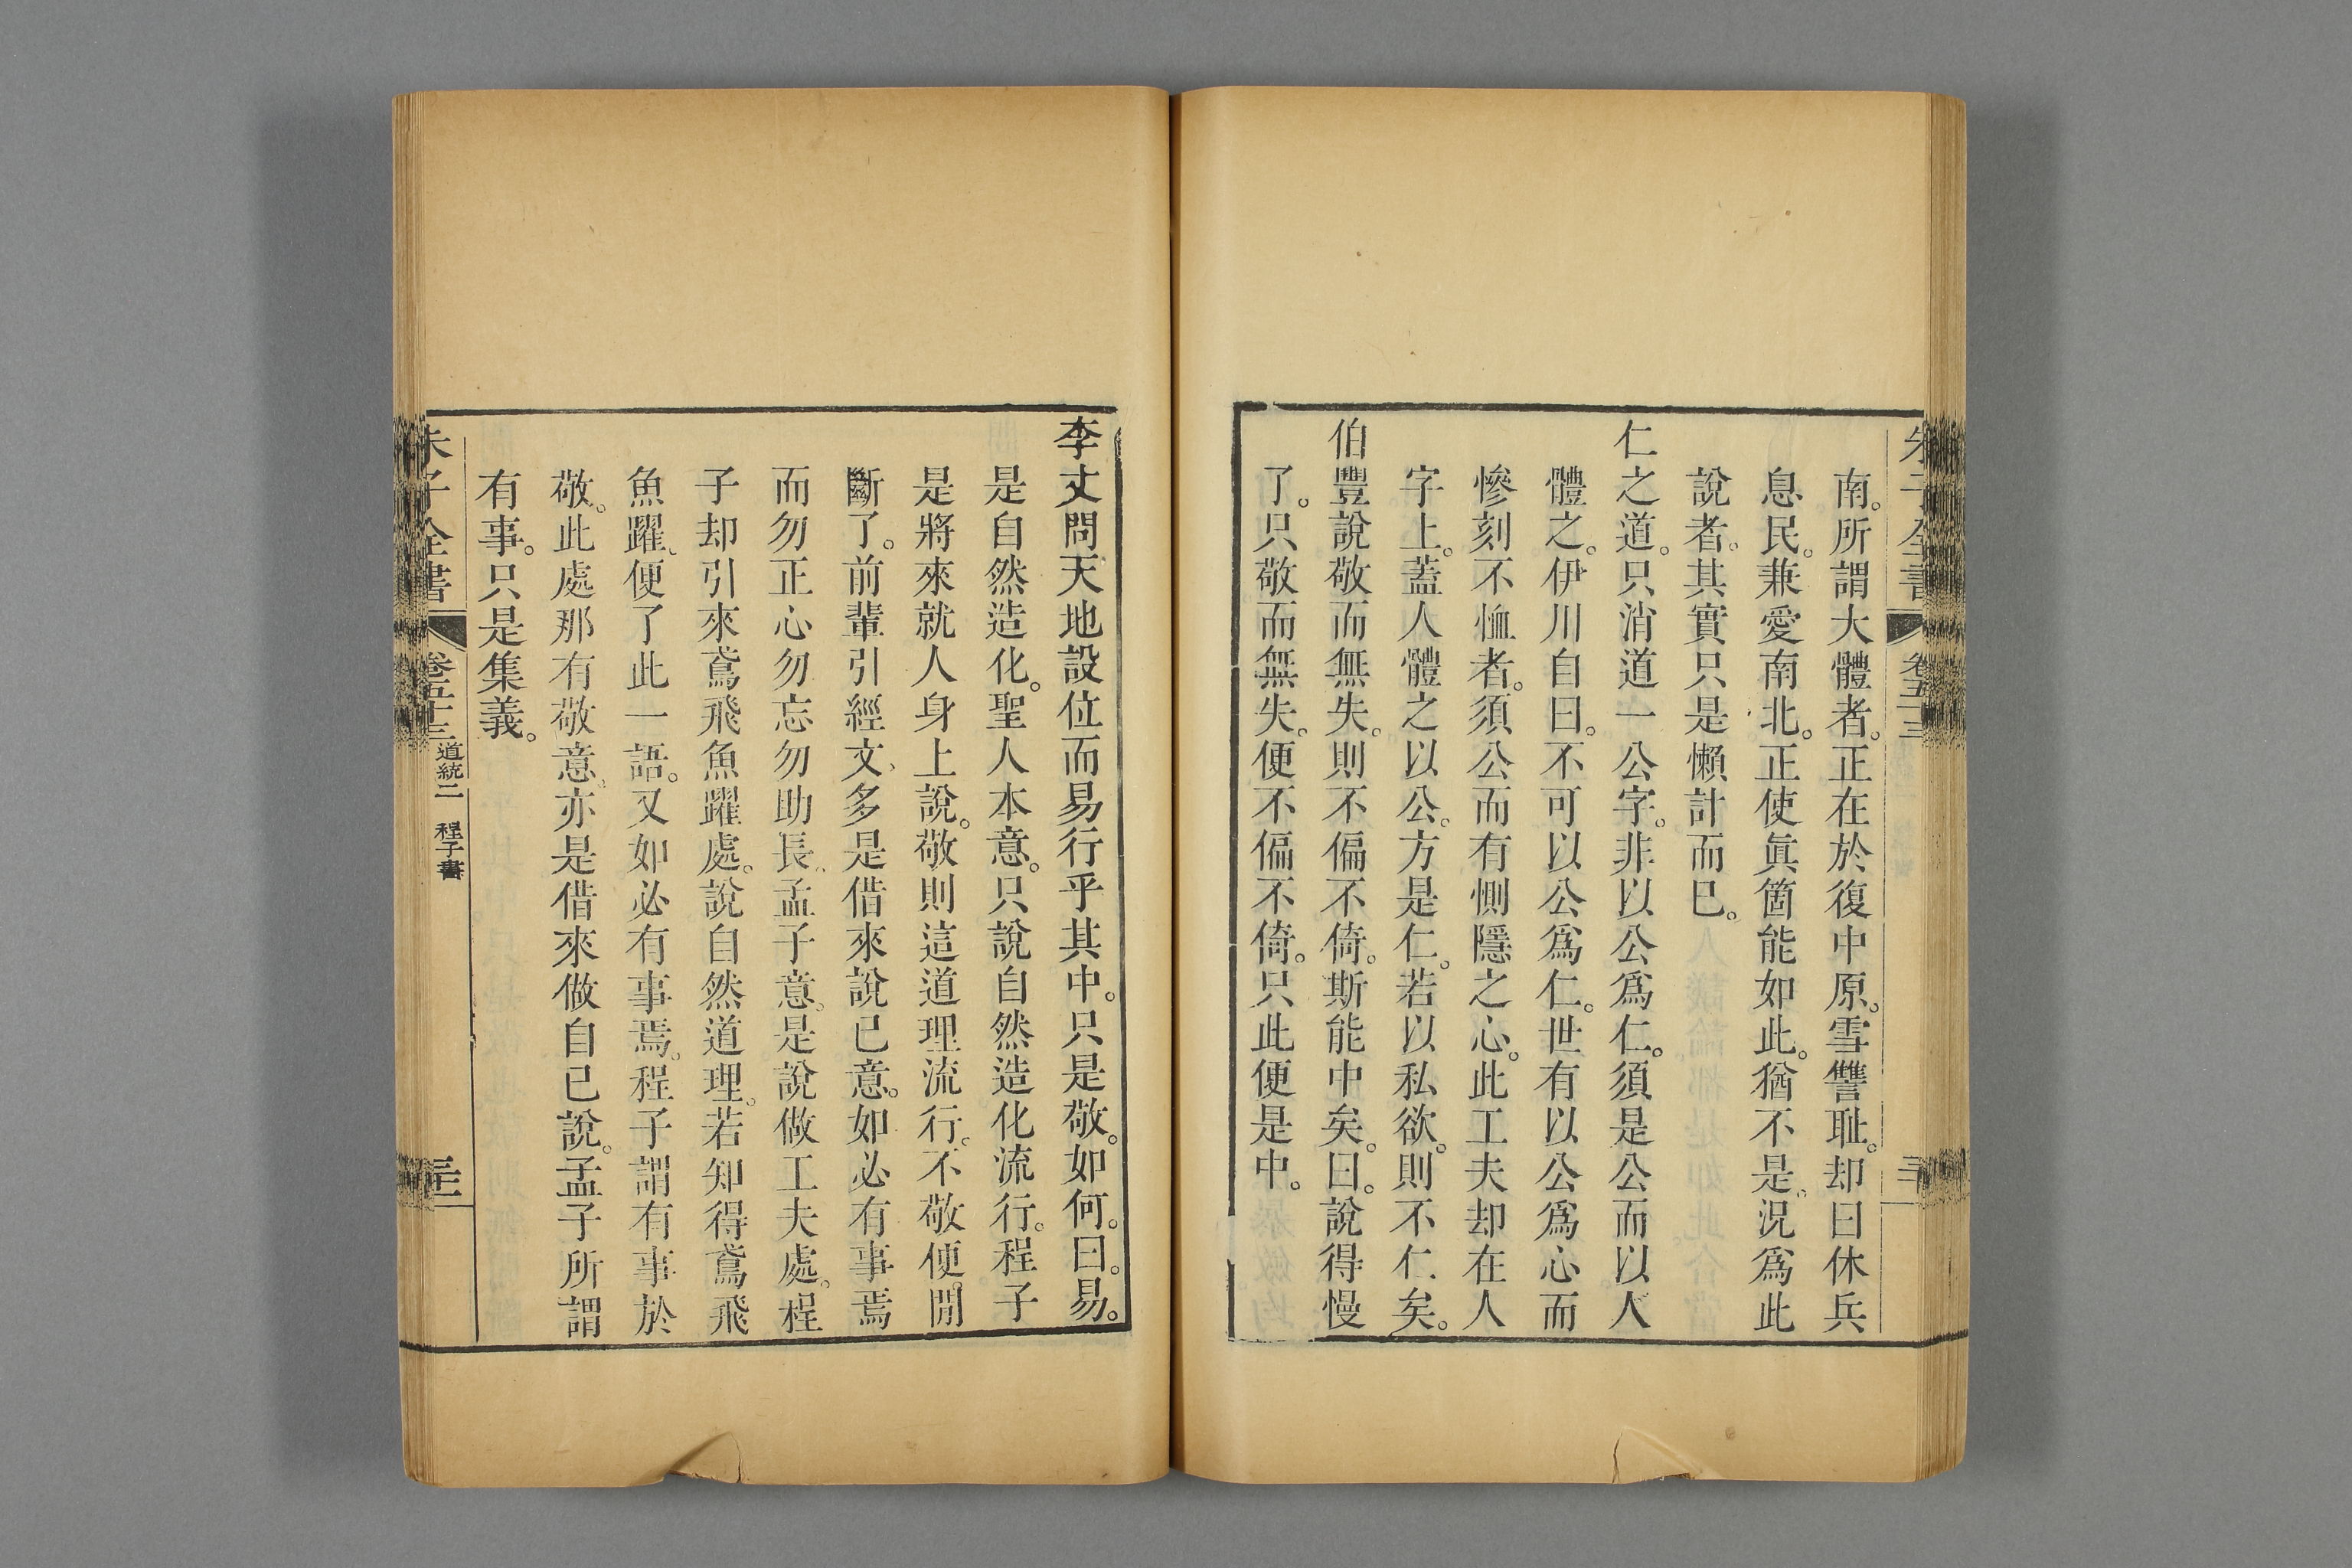 朱子全書 卷五十三 三十
南。所謂大體者。正在於復中原。雪讐耻。却曰休兵
息民。兼愛南北。正使眞箇能如此。猶不是、況爲此
說者。其實只是懶計而巳。
仁之道。只消道一公字。非以公爲仁。須是公而以人
體之。伊川自曰。不可以公爲仁。世有以公爲心而
慘刻不恤者。須公而有惻隱之心。此工夫却在人
字上。蓋人體之以公。方是仁。若以私欲。則不仁矣。
伯豐說敬而無失。則不偏不倚。斯能中矣。曰。說得慢
了。只敬而無失。便不偏不倚。只此便是中。
李丈問天地設位而易行乎其中。只是敬。如何。曰。易。
是自然造化。聖人本意。只說自然造化流行。程子
是將來就人身上說。敬則這道理流行。不敬便閒
斷了。前輩引經文、多是借來說已意。如必有事焉
而勿正心勿忘勿助長、孟子意。是說做工夫處。程
子却引來鳶飛魚躍處。說自然道理。若知得鳶飛
魚躍、便了此一語。又如必有事焉。程子謂有事於
敬。此處那有敬意、亦是借來做自已說。孟子所謂
有事。只是集義。
朱子全書 卷五十三 道統二 程子書